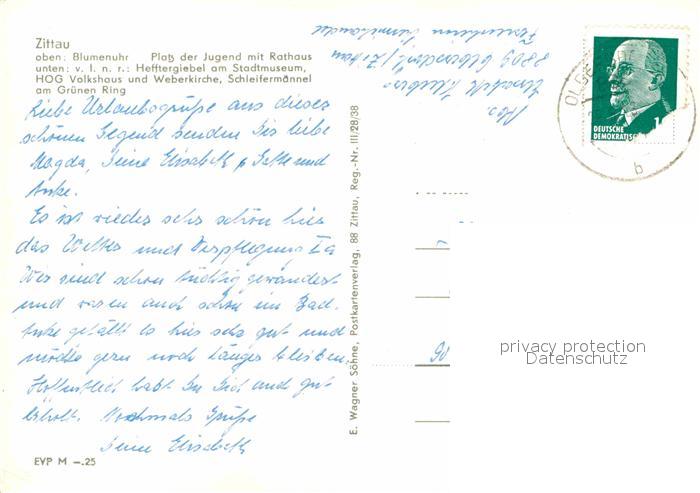 Zittau
oben: Blumenuhr Platz der Jugend mit Rathaus
unten: v. l. n. r.: Hefftergiebel am Stadtmuseum,
HOG Volkshaus und Weberkirche, Schleifermännel
am Grünen Ring
Liebe Urlaubsgrüße aus dieser
schönen Gegend senden Dir liebe
Magda, Deine Elisabeth, Gatte und
Anke.
Es ist wieder sehr schön hier
das Wetter und Verpflegung Ia
Wir sind schon tüchtig gewandert
und waren auch schon im Bad.
Anke gefällt es hier sehr gut und
möchte gern noch länger bleiben.
Hoffentlich habt Ihr Dich und gut
erholt. Nochmals Grüße
Deine Elisabeth
EVP M —.25
E. Wagner Söhne, Postkartenverlag, 88 Zittau, Reg.-Nr. III/28/38
Abs.
Elisabeth
8809
Ferienheim
DEUTSCHE
DEMOKRATISCH
1
OL
b
90
privacy protection
Datenschutz